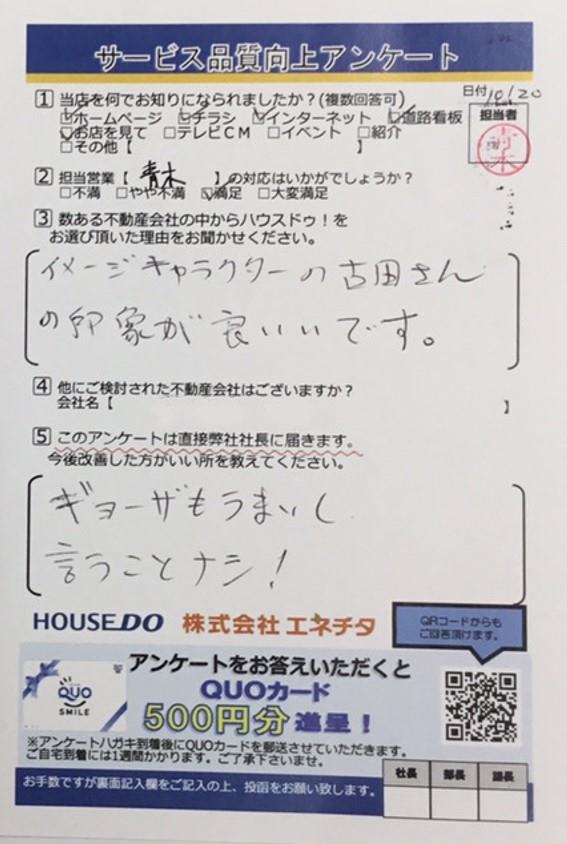 サービス品質向上アンケート
日付 10/20
担当者
1 当店を何でお知りになられましたか?(複数回答可)
☑ホームページ ☑チラシ ☑インターネット ☑道路看板
☑お店を見て □テレビCM □イベント □紹介
□その他【 】
2 担当営業【 青木 】の対応はいかがでしょうか?
□不満 □やや不満 ☑満足 □大変満足
3 数ある不動産会社の中からハウスドゥ!を
お選び頂いた理由をお聞かせください。
イメージキャラクターの古田さん
の印象が良いいです。
4 他にご検討された不動産会社はございますか?
会社名【 】
5 このアンケートは直接弊社社長に届きます。
今後改善した方がいい所を教えてください。
ギョーザもうまいし
言うことナシ!
HOUSEDO 株式会社 エネチタ
QRコードからも
ご回答頂けます。
アンケートをお答えいただくと
QUOカード
500円分 進呈!
QUO
SMILE
※アンケートハガキ到着後にQUOカードを郵送させていただきます。
ご自宅到着には1週間かかります。ご了承下さいませ。
社長 部長 課長
お手数ですが裏面記入欄をご記入の上、投函をお願い致します。